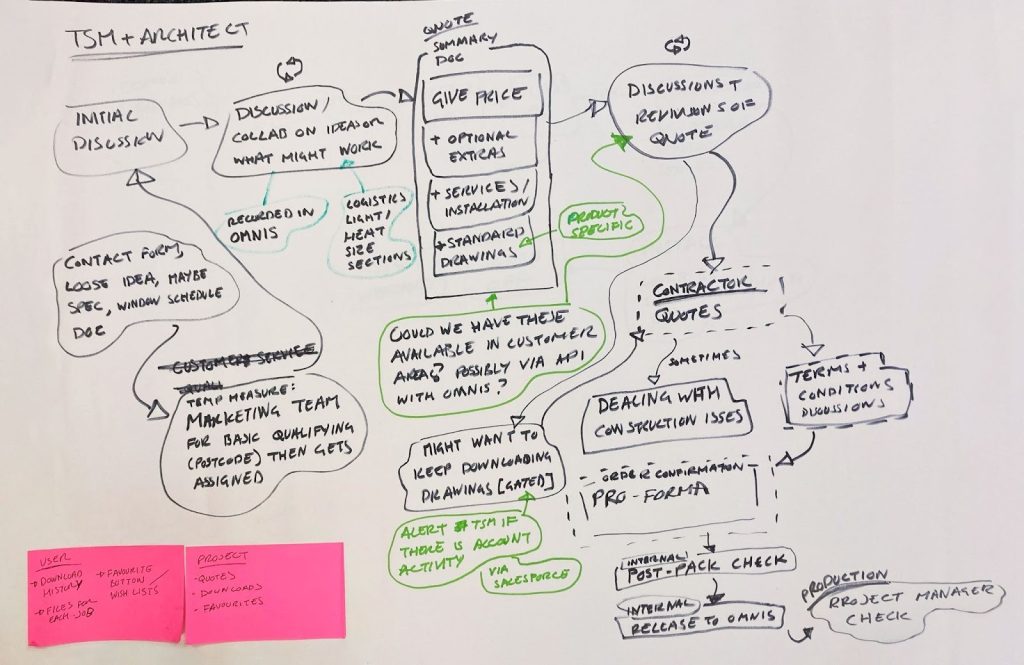 TSM + ARCHITECT
INITIAL
DISCUSSION
DISCUSSION/
COLLAB ON IDEAS OR
WHAT MIGHT WORK
RECORDED IN
OMNIS
LOGISTICS
LIGHT/
HEAT
SIZE
SECTIONS
QUOTE
SUMMARY
DOC
GIVE PRICE
+ OPTIONAL
EXTRAS
+ SERVICES/
INSTALLATION
+ STANDARD
DRAWINGS
PRODUCT
SPECIFIC
DISCUSSIONS +
REVISIONS OF
QUOTE
CONTACT FORM,
LOOSE IDEA, MAYBE
SPEC, WINDOW SCHEDULE
DOC
CUSTOMER SERVICE
TEMP MEASURE:
MARKETING TEAM
FOR BASIC QUALIFYING
(POSTCODE) THEN GETS
ASSIGNED
COULD WE HAVE THESE
AVAILABLE IN CUSTOMER
AREA? POSSIBLY VIA API
WITH OMNIS?
CONTRACTOR
QUOTES
SOMETIMES
DEALING WITH
CONSTRUCTION ISSES
TERMS +
CONDITIONS
DISCUSSIONS
MIGHT WANT TO
KEEP DOWNLOADING
DRAWINGS [GATED]
ALERT TSM IF
THERE IS ACCOUNT
ACTIVITY
VIA
SALESFORCE
ORDER CONFIRMATION
PRO-FORMA
INTERNAL
POST-PACK CHECK
INTERNAL
RELEASE TO OMNIS
PRODUCTION
PROJECT MANAGER
CHECK
USER
→ DOWNLOAD
HISTORY
→ FILES FOR
EACH JOB
→ FAVOURITE
BUTTON /
WISH LISTS
PROJECT
- QUOTES
- DOWNLOADS
- FAVOURITES